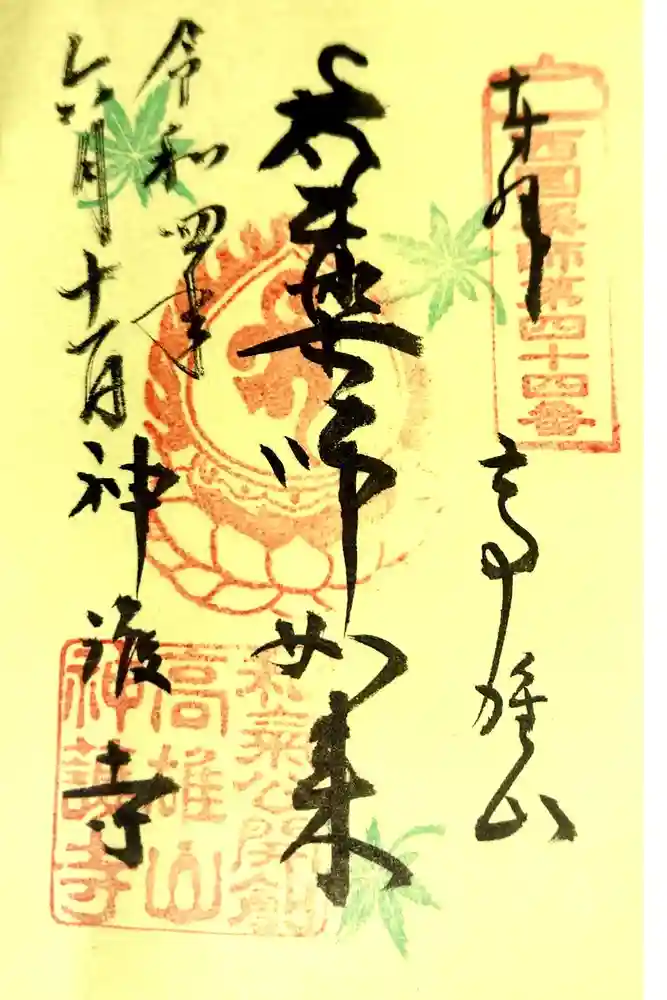 奉拝
西国薬師第四十四番
高雄山
薬師如来
和気公開創
高雄山
神護寺
令和四年
六月十一日
神護寺